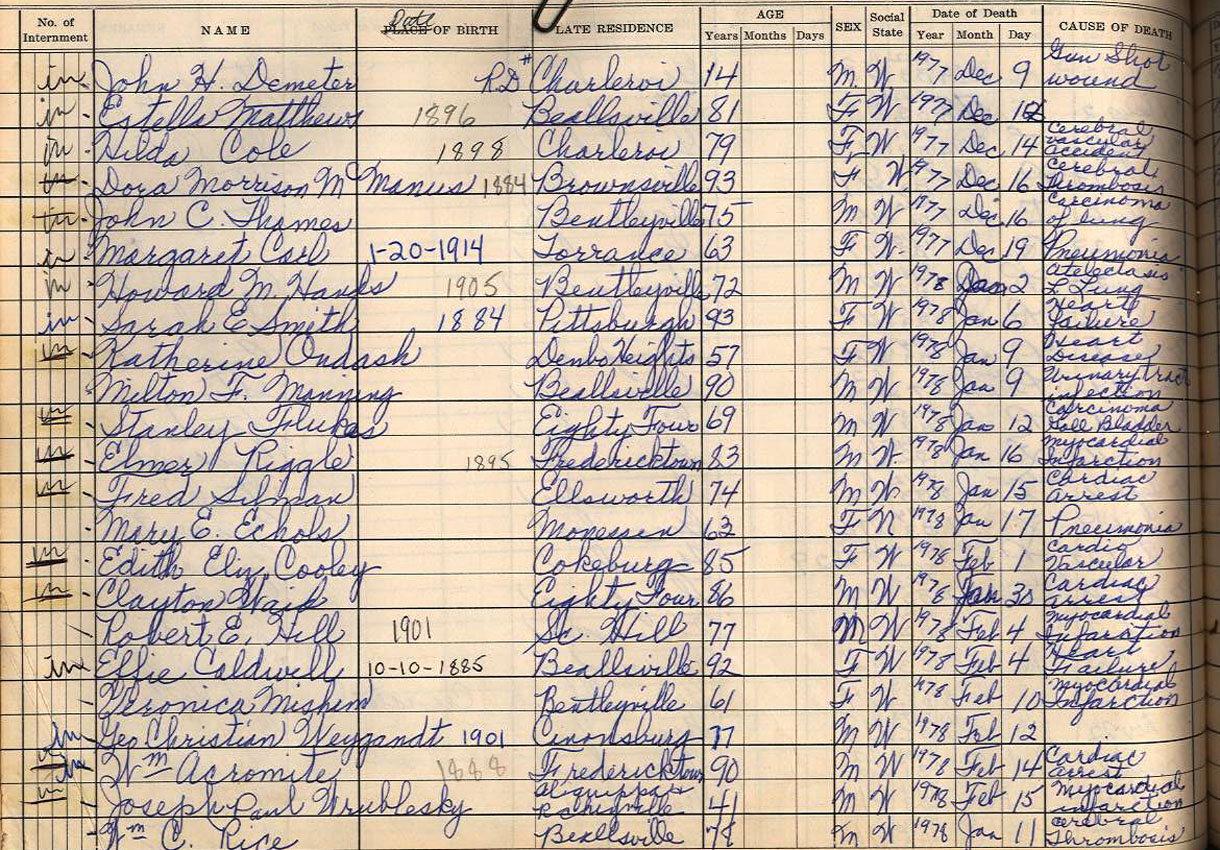 No. of Internment NAME Date PLACE OF BIRTH LATE RESIDENCE AGE Years Months Days SEX Social State Date of Death Year Month Day CAUSE OF DEATH
in John H. Demeter RD# Charleroi 14 M. W. 1977 Dec 9 Gun Shot wound
in Estella Matthews 1896 Beallsville 81 F W 1977 Dec
in Hilda Cole 1898 Charleroi 79 F W 1977 Dec 14 Cerebral vascular accident
in Dora Morrison McManus 1884 Brownsville 93 F W 1977 Dec 16 Cerebral Thrombosis
in John C. Thomes Bentleyville 75 M W 1977 Dec 16 Carcinoma of lung
in Margaret Carl 1-20-1914 Torrance 63 F W. 1977 Dec 19 Pneumonia
in Howard M. Hanks 1905 Bentleyville 72 M W 1978 Jan 2 Atelectasis L Lung
in Sarah E Smith 1884 Pittsburgh 93 F W 1978 Jan 6 Heart Failure
in Katherine Ondash Denbo Heights 57 F W 1978 Jan 9 Heart Disease
Milton F. Manning Beallsville 90 M W 1978 Jan 9 Urinary tract infection
in Stanley Flukas Eighty Four 69 M W 1978 Jan 12 Carcinoma Gall Bladder
in Elmer Riggle 1895 Fredericktown 83 M W. 1978 Jan 16 Myocardial Infarction
in Fred Silman Ellsworth 74 M W 1978 Jan 15 Cardiac arrest
Mary E. Echols Monessen 62 F N 1978 Jan 17 Pneumonia
in Edith Eliz Cooley Cokeburg 85 F W 1978 Feb 1 Cardio Vascular
in Clayton Eighty Four 86 M W 1978 Jan 30 Cardiac arrest
Robert E. Hill 1901 Sc. Hill 77 M W 1978 Feb 4 Myocardial Infarction
in Effie Caldwell 10-10-1885 Beallsville 92 F W 1978 Feb 4 Heart Failure
Veronica Mishim Bentleyville 61 F W 1978 Feb 10 Myocardial Infarction
in Geo Christian Weygandt 1901 Cinonsburg 77 M W 1978 Feb 12
in Wm Acromite 1888 Fredericktown 90 M W 1978 Feb 14 Cardiac arrest
in Joseph Paul Wrublesky Aliquippa 41 M W 1978 Feb 15 Myocardial infarction
Wm C. Rice Beallsville M W 1978 Jan 11 Cerebral Thrombosis